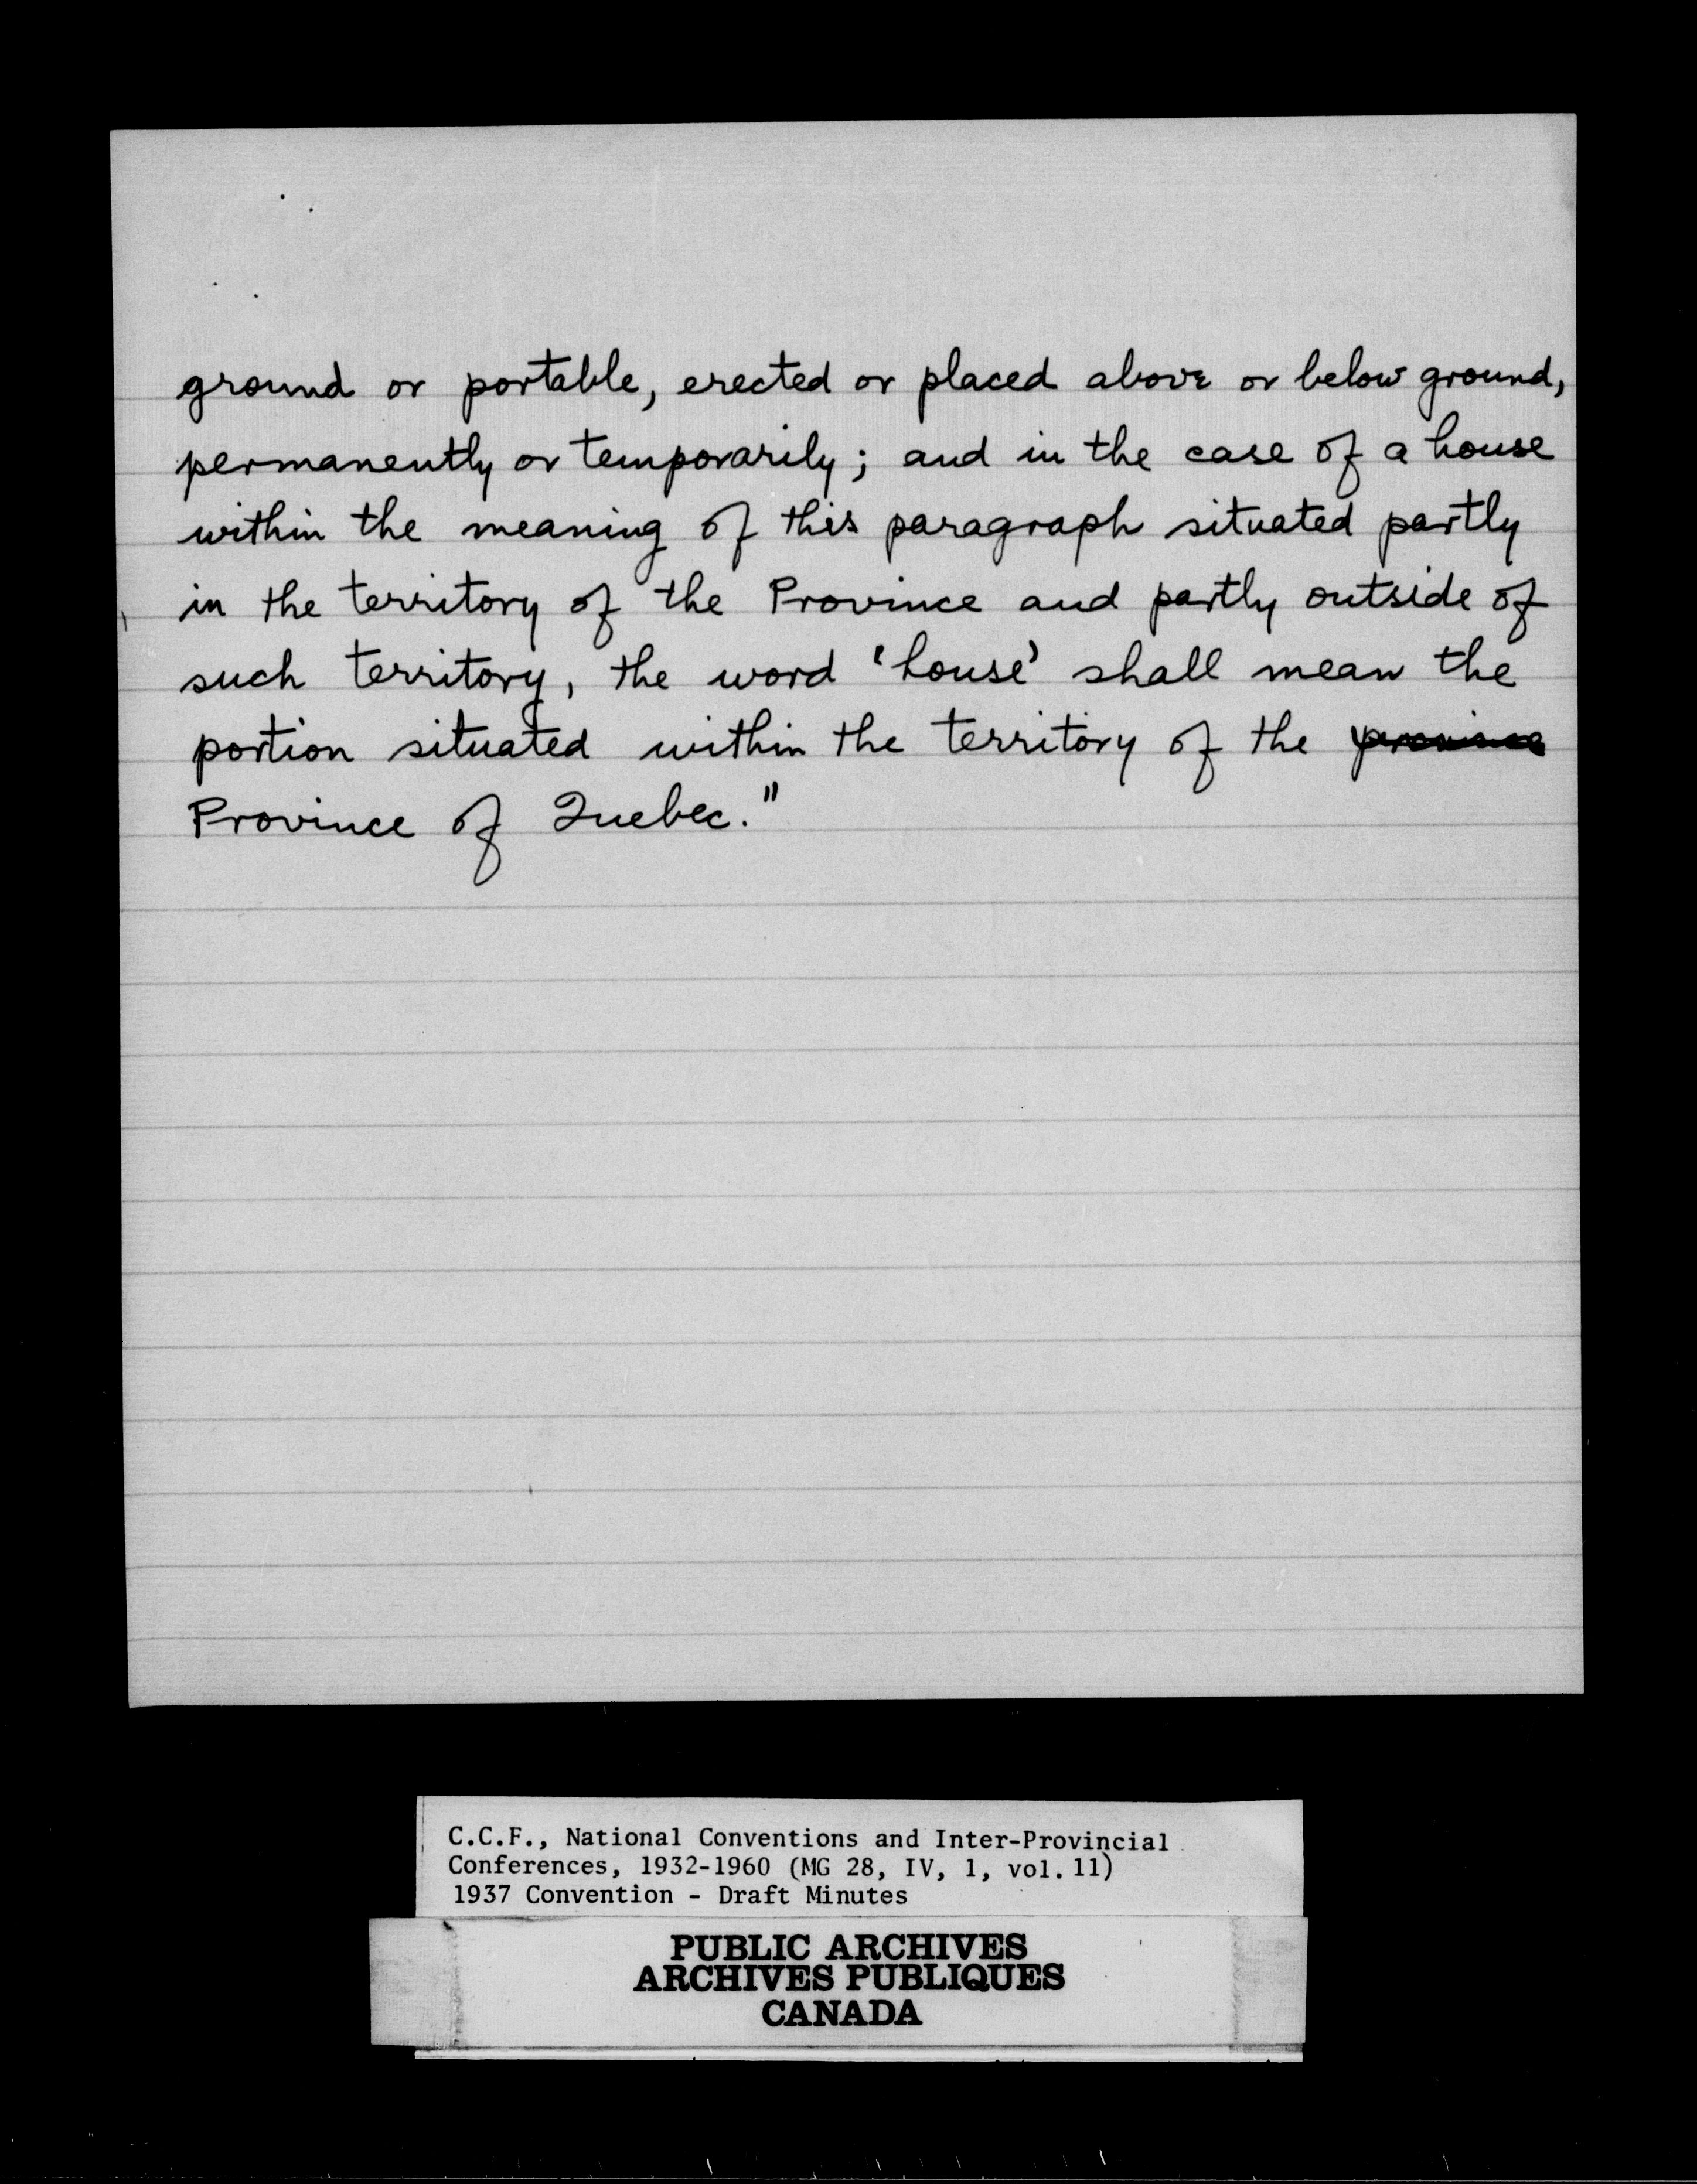 ground or portable, erected or placed above or below ground,
permanently or temporarily; and in the case of a house
within the meaning of this paragraph situated partly
in the territory of the Province and partly outside of
such territory, the word 'house' shall mean the
portion situated within the territory of the province
Province of Quebec."
C.C.F., National Conventions and Inter-Provincial
Conferences, 1932-1960 (MG 28, IV, 1, vol. 11)
1937 Convention - Draft Minutes
PUBLIC ARCHIVES
ARCHIVES PUBLIQUES
CANADA